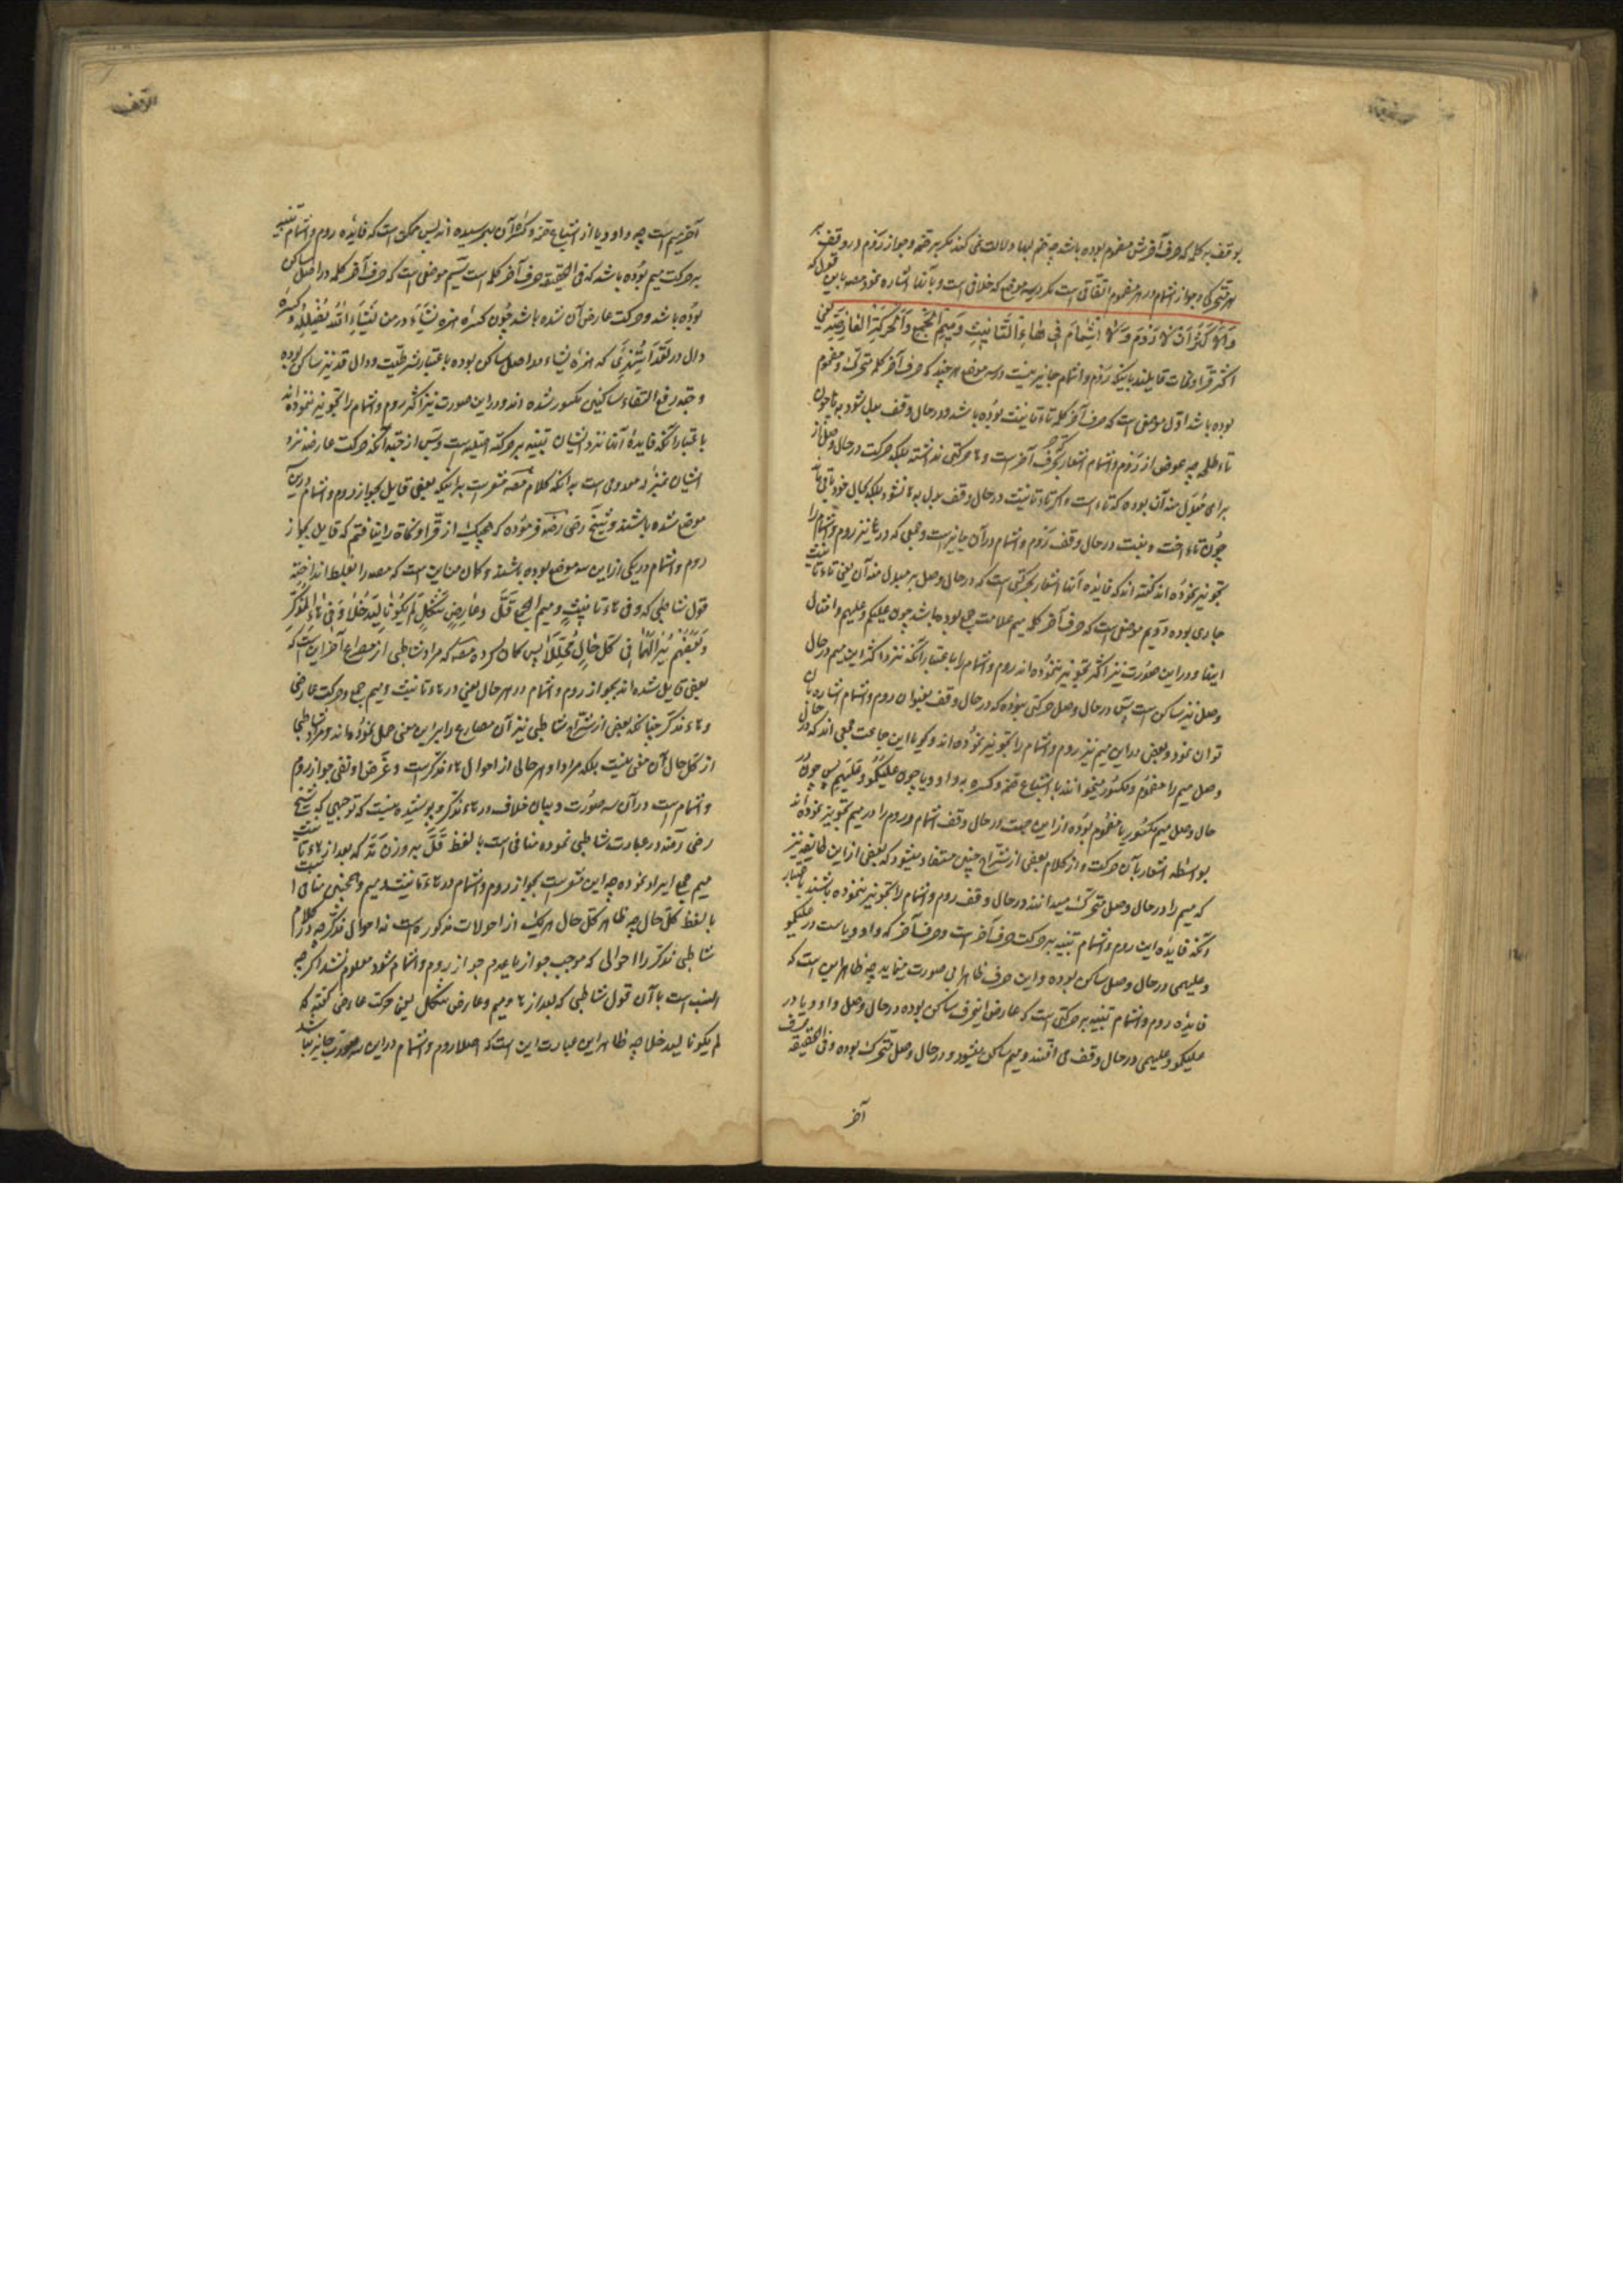 بوقف به کلمه که حرف آخرش مضموم بوده باشد چه ضم لبها دلالت نمی کند مگر بر ضمه و جواز رَوْم در وقف بر
هر متحرکی و جواز اشمام در هر مضموم اتفاقی است مگر در سه موضع که خلافی است و بآنها اشاره نموده مصه باین قول که
وَالاَکْثَرُ اَنْ لَا رَوْمَ وَ لَا اِشْمَامَ فِی هَاءِ التَّانِیثِ وَ مِیمِ الْجَمْعِ وَ الْحَرَکَةِ الْعَارِضَةِ یعنی
اکثر قرّا و نحات قایلند باینکه رَوْم و اشمام جایز نیست در سه موضع هر چند که حرف آخر کلمه متحرک و مضموم
بوده باشد اوّل موضعی است که حرف آخر کلمه تاء تانیث بوده باشد و در حال وقف بدل شود به ها چون
طلحه چه غرض از رَوْم و اشمام اشعار بحرکت حرف آخر است و ها حرکتی نداشته بلکه حرکت در حال وصل از
برای مُبدَل منه آن بوده که تاء است و اگر تاء تانیث در حال وقف بدل به ها نشود بلکه بحال خود باقی ماند
چون تاء اخت و بنت در حال وقف رَوْم و اشمام در آن جایز است و جمعی که در ها نیز روم و اشمام را
تجویز نموده اند گفته اند که فایده آنها اشعار بحرکتی است که در حال وصل بر مبدل منه آن یعنی تاء تانیث
جاری بوده و دویم موضعی است که حرف آخر کلمه میم علامت جمع بوده باشد چون علیکم و علیهم و امثال
اینها و در این صورت نیز اکثر تجویز ننموده اند روم و اشمام را باعتبار آنکه نزد اکثر این میم در حال
وصل نیز ساکن است پس در حال وصل حرکتی نبوده که در حال وقف بعنوان روم و اشمام اشاره بآن
توان نمود و بعضی در این میم نیز روم و اشمام را تجویز نموده اند و گویا این جماعت جمعی اند که در حال
وصل میم را مضموم و مکسور میخوانند با اشباع ضمه و کسره به واو و یا چون علیکمو و علیهمی پس چون در
حال وصل میم مکسور یا مضموم بوده از این جهت در حال وقف اشمام و روم را در میم تجویز نموده اند
بواسطه اشعار بآن حرکت و از کلام بعضی از شرّاح چنین مستفاد میشود که بعضی از این طایفه نیز
که میم را در حال وصل متحرک میدانند در حال وقف روم و اشمام را تجویز ننموده باشند باعتبار
آنکه فایده این روم و اشمام تنبیه بر حرکت حرف آخر است و حرف آخر که واو و یاست در علیکمو
و علیهمی در حال وصل ساکن بوده و این حرف ظاهرا بی صورت مینماید چه ظاهر این است که
فایده روم و اشمام تنبیه بر حرکتی است که عارض این حرف ساکن بوده در حال وصل و واو و یا در
علیکمو و علیهمی در حال وقف می افتند و میم ساکن میشود و در حال وصل متحرک بوده و فی الحقیقه حرف
آخر
آخر میم است چه واو و یا از اشباع ضمه و کسره آن بهم رسیده اند پس ممکن است که فایده روم و اشمام تنبیه
بر حرکت میم بوده باشد که فی الحقیقه حرف آخر کلمه است سیّم موضعی است که حرف آخر کلمه در اصل ساکن
بوده باشد و حرکت عارض آن شده باشد چون کسره همزه نشاء در من یَشَاءِ اللّهُ یُضْلِلْهُ و کسرهٔ
دال در لَقَدِ اسْتُهْزِئَ که همزهٔ یشاء در اصل ساکن بوده باعتبار شرطیّت و دال قد نیز ساکن بوده
و جهة رفع التقاء ساکنین مکسور شده اند و در این صورت نیز اکثر روم و اشمام را تجویز ننموده اند
باعتبار آنکه فایدهٔ آنها نزد ایشان تنبیه بر حرکة است و پس از جهة آنکه حرکت عارضه نزد
ایشان بمنزلهٔ معدومی است بدانکه کلام مصه مشعر است براینکه بعضی قایل بجواز روم و اشمام در این
موضع شده باشند و شیخ رضی رضه فرموده که هیچیک از قرّا و نحاة را نیافتم که قایل بجواز
روم و اشمام در یکی از این سه موضع بوده باشند و گمان من این است که مصه را بغلط انداخته
قول شاطبی که و فی هاء تانیثٍ و میم الجمع قُلْ وَ عَارِضِ شَکْلٍ لَمْ یَکُونَا لِیَدْخُلَا وَ فِی الْهَاءِ لِلْمُذَکَّرِ
وَ بَعْضُهُمْ یَرَى لَهُمَا فِی کُلِّ حَالٍ مُحَلِّلَا پس گمان کرده مصه که مراد شاطبی از مصراع آخر این است که
بعضی قایل شده اند بجواز روم و اشمام در هر حال یعنی در هاء تانیث و میم جمع و حرکت عارضی
و هاء مذکر چنانکه بعضی از شرّاح شاطبی نیز آن مصراع را بر این معنی حمل نموده اند و مراد شاطبی
از کل حال آن معنی نیست بلکه مراد او هر حالی از احوال هاء مذکر است و غرض او نفی جواز روم
و اشمام است در آن سه صورت و بیان خلاف در هاء مذکر و پوشیده نیست که توجیهی که شیخ
رضی رضه در عبارت شاطبی نموده منافی است با لفظ قُلْ که بعد از هاء تانیث
میم جمع ایراد نموده چه این مشعر است بجواز روم و اشمام در هاء تانیث و میم و همچنین منافی است
با لفظ کل حال چه ظاهر کل حال هر یک از احوالات مذکوره است نه احوال مذکر چه در کلام
شاطبی مذکر را احوالی که موجب جواز یا عدم جواز روم و اشمام شود معلوم نشد اگر چه
انسب است با آن قول شاطبی که بعد از ها و میم و عارض شکل یعنی حرکت عارضی گفته که
لم یکونا لیدخلا چه ظاهر این عبارت این است که اصلا روم و اشمام در این سه صورت جایز نباشد